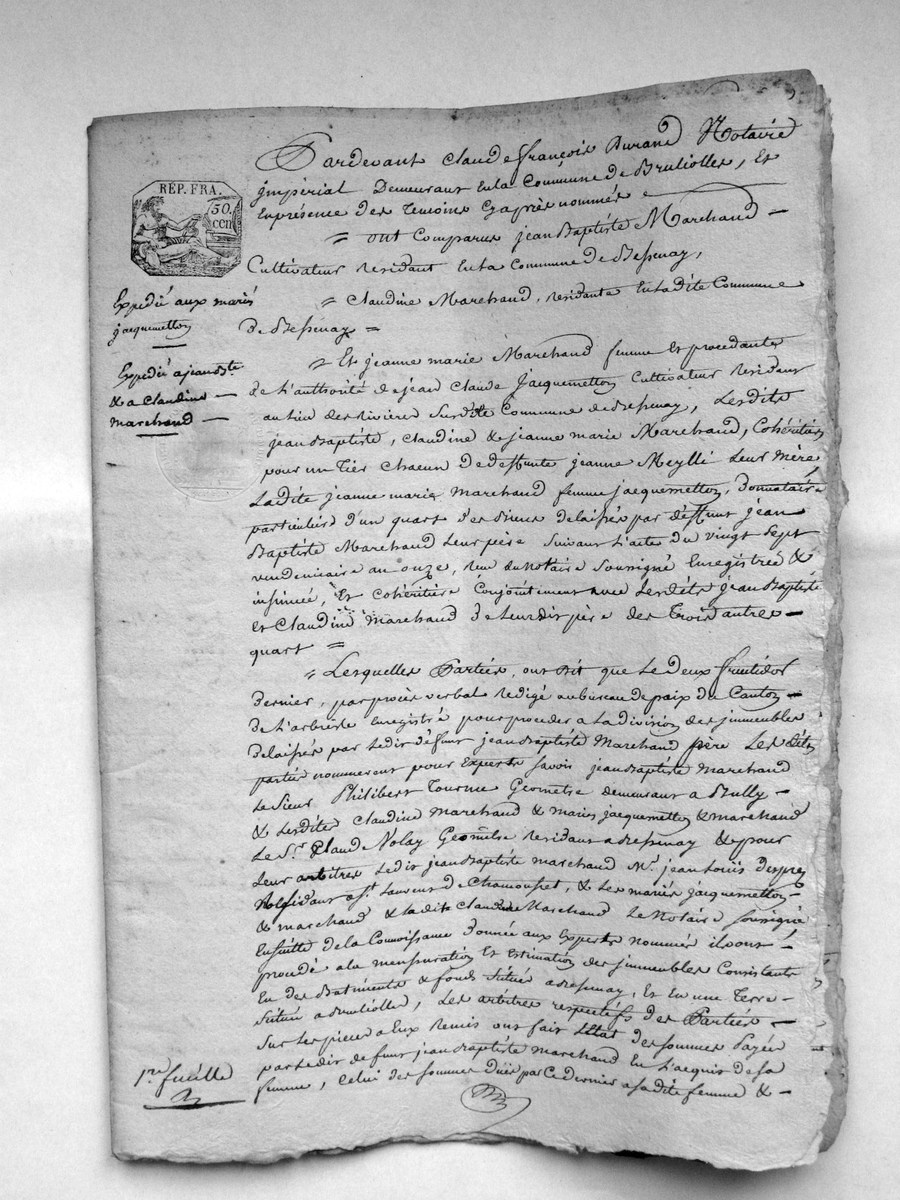 REP. FRA.
50
cen
Pardevant Claude françois Durand Notaire
impérial Demeurant En la Commune de Brulioles, Et
Enprésence des temoins Cyaprès nommés
= ont Comparus jeanBaptiste Marchand —
Cultivateur residant En la Commune de Bessenay,
= Claudine Marchand, residante En ladite Commune
de Bessenay =
Expedié aux mariés
jacquemetton
Expedié a jean Bte
& a Claudine —
Marchand —
= Et jeanne marie Marchand femme Et procedante
de L'authorité de jean Claude Jacquemetton Cultivateur Residant
au lieu des Rivières Surdite Commune de Bessenay, Lesdits
jeanBaptiste, Claudine & jeanne marie Marchand, Cohéritiers
pour un tier chacun de deffunte jeanne Meylli Leur mère
Ladite jeanne marie Marchand femme jacquemetton, Donnataire
particulière d'un quart des Biens delaissés par deffunt jean
Baptiste Marchand Leur père suivant L'acte du vingt Sept
vendemiaire an onze, reçu du Notaire Soussigné Enregistrée &
insinuée, Et Cohéritière Conjointement avec Lesdits jeanBaptiste
et Claudine Marchand de Leurdit père des Trois autres —
quart =
= Lesquelles Parties, ont dit que Le deux fructidor
dernier, par procès verbal redigé au bureau de paix du Canton —
de L'arbresle Enregistré pour proceder a La division des jmmeubles
delaissés par Ledit défunt jeanBaptiste Marchand père Les dites
parties nommerent pour Experts savoir jeanBaptiste Marchand
Le Sieur Philibert Tourme Géometre demeurant a Bully —
& Lesdites Claudine Marchand & mariés jacquemetton & marchand
Le Sr. Claude Nolay Géomètre Residant a Bessenay & pour
Leur arbitres Ledit jeanBaptiste marchand Mr. jean Louis Desprez
Residant a St. Laurent de Chamousset, & Les mariés jacquemetton
& marchand & ladite Claudine Marchand Le Notaire soussigné
Ensuitte de la Connoissance donnée aux Experts nommés ils ont —
procedé a la mensuration Et Estimation des jmmeubles Consistants
En des Batiments & fonds situés a Bessenay, Et En une Terre —
Située a Brullioles, Les arbitres respectifs des Parties —
Sur Les pièces a Eux Remis ont fait Etat des sommes Payées
par Ledit defunt jeanBaptiste Marchand En L'acquis de sa
femme, Celui des sommes dües par Ce dernier a sadite femme & —
1re. feuille